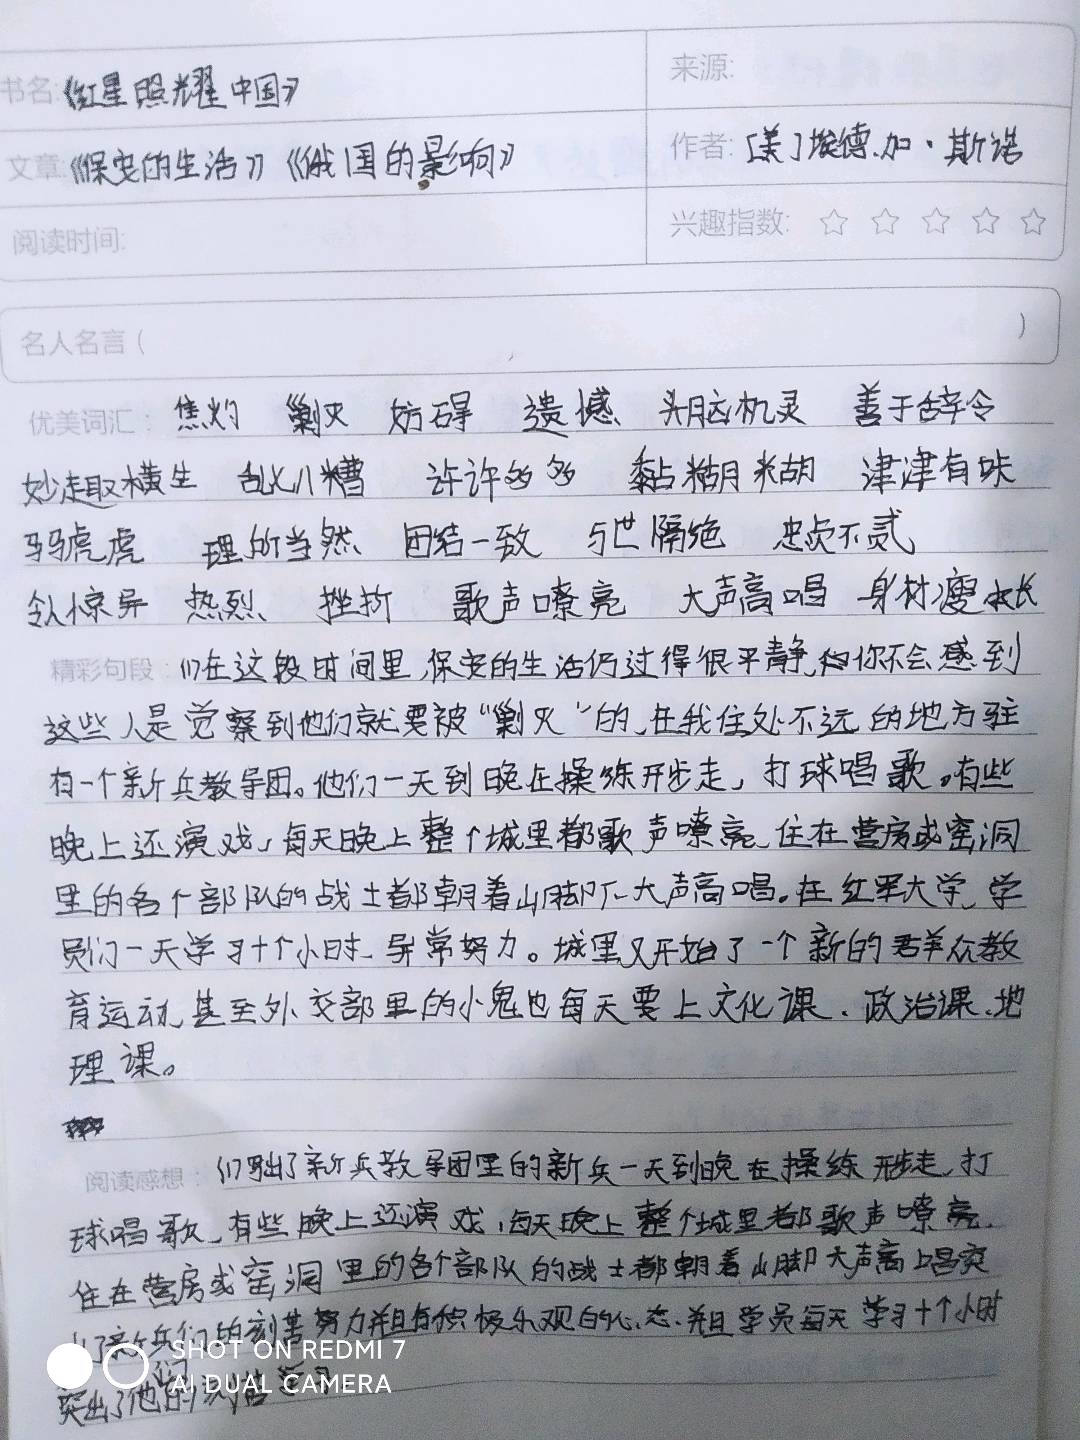 书名:《红星照耀中国》
来源:
文章:《保安的生活》《俄国的影响》
作者:[美]埃德.加·斯诺
阅读时间:
兴趣指数: ☆ ☆ ☆ ☆ ☆
名人名言 ( )
优美词汇: 焦灼 剿灭 妨碍 遗憾 头脑机灵 善于辞令
妙趣横生 乱七八糟 许许多多 黏糊糊 津津有味
马虎虎 理所当然 团结一致 与世隔绝 忠贞不贰
令人惊异 热烈 挫折 歌声嘹亮 大声高唱 身材瘦长
精彩句段: (1)在这段时间里,保安的生活仍过得很平静,你不会感到
这些人是觉察到他们就要被“剿灭”的,在我住处不远的地方驻
有一个新兵教导团。他们一天到晚在操练开步走,打球唱歌。有些
晚上还演戏,每天晚上整个城里都歌声嘹亮,住在营房或窑洞
里的各个部队的战士都朝着山脚下大声高唱。在红军大学,学
员们一天学习十个小时,异常努力。城里又开始了一个新的群众教
育运动,甚至外交部里的小鬼也每天要上文化课、政治课、地
理课。
阅读感想: (1)写出了新兵教导团里的新兵一天到晚在操练形步走,打
球唱歌,有些晚上还演戏,每天晚上整个城里都歌声嘹亮,
住在营房或窑洞里的各个部队的战士都朝着山脚大声高唱突
出了新兵们的刻苦努力并且有积极乐观的心态.并且学员每天学习十个小时
突出了他们的刻苦学习
SHOT ON REDMI 7
AI DUAL CAMERA